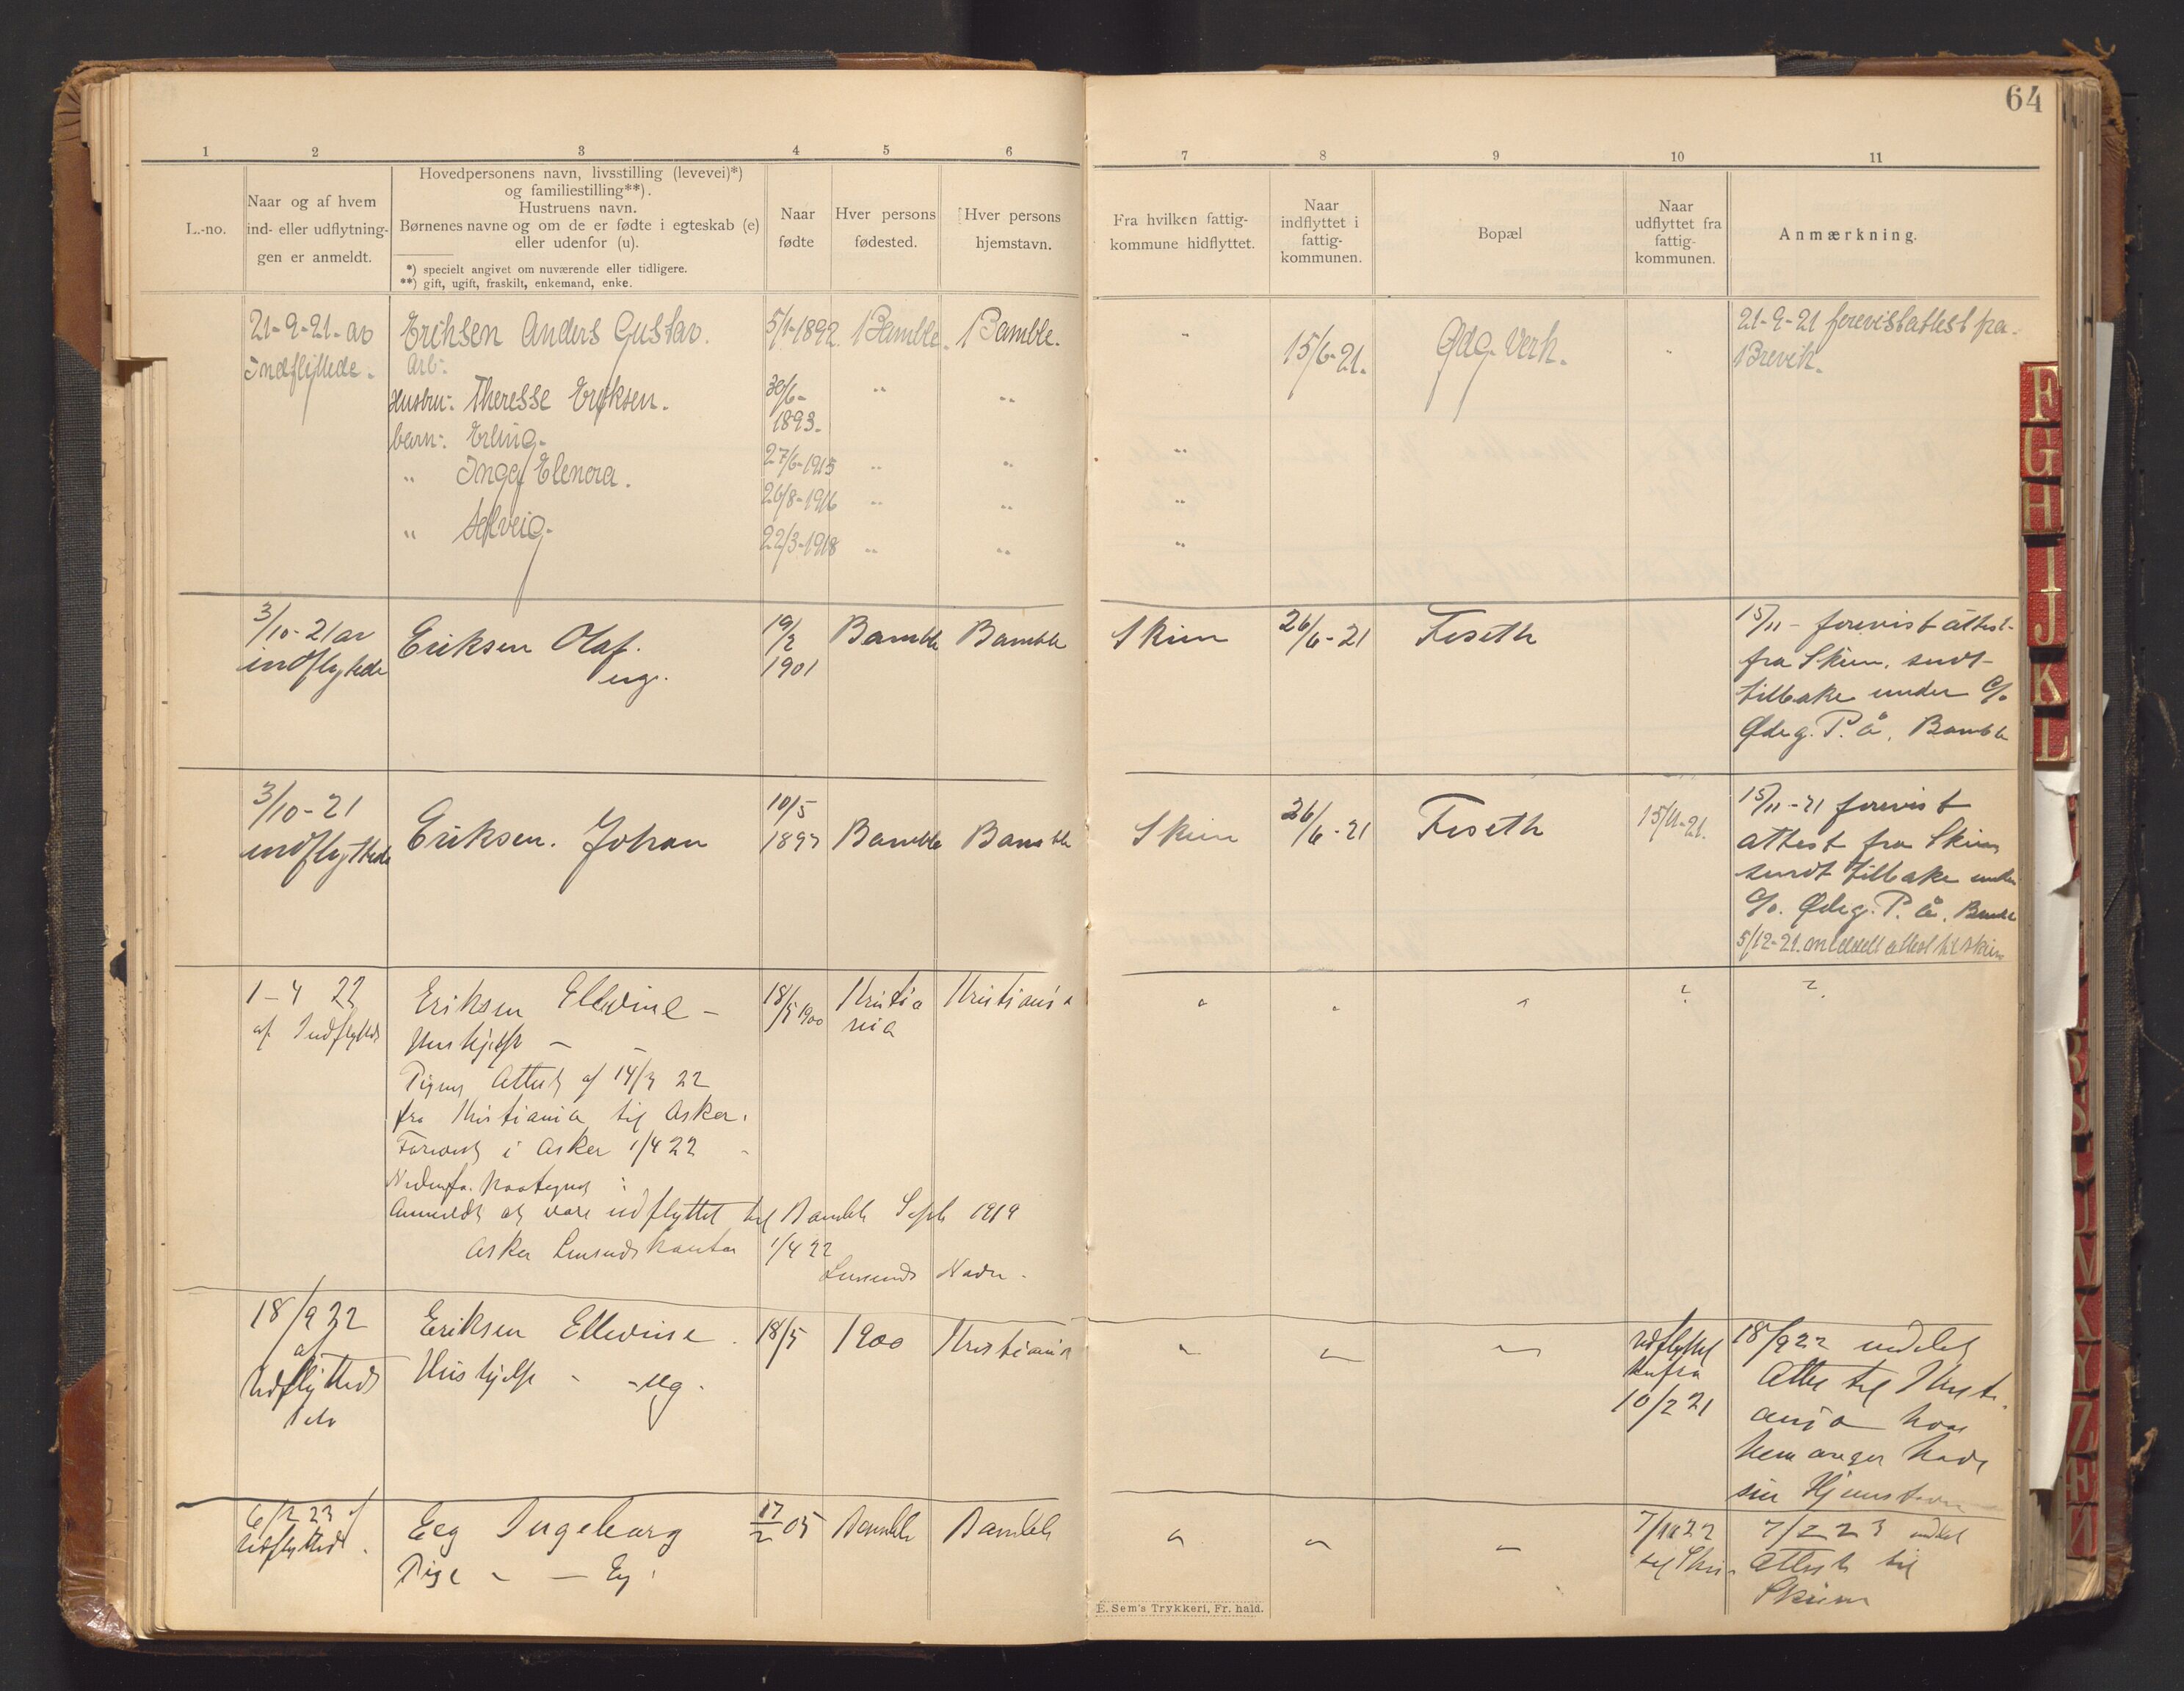 64
1 2 3 4 5 6 7 8 9 10 11
L.-no.
Naar og af hvem
ind- eller udflytnin-
gen er anmeldt.
Hovedpersonens navn, livsstilling (levevei)*)
og familiestilling**).
Hustruens navn.
Børnenes navne og om de er fødte i egteskab (e)
eller udenfor (u).
*) specielt angivet om nuværende eller tidligere.
**) gift, ugift, fraskilt, enkemand, enke.
Naar
fødte
Hver persons
fødested.
Hver persons
hjemstavn.
Fra hvilken fattig-
kommune hidflyttet.
Naar
indflyttet i
fattig-
kommunen.
Bopæl
Naar
udflyttet fra
fattig-
kommunen.
Anmærkning.
21-9-21 av
Indflyttede.
Eriksen Anders Gustav.
Arb.
5/1-1892 Bamble. Bamble.
15/6-21.
Ødg. Verk.
21-9-21 forevist attest fra
Brevik.
Hustru: Theresse Eriksen.
30/6-
1893.
barn: Erling.
27/6-1915
" Inga Elenora.
26/8-1916
" Solveig.
22/3-1918
3/10-21 av
indflyttede
Eriksen Olaf.
ug.
19/2
1901
Bamble Bamble
Skien
26/6-21
Feseth
15/11- forevist attest
fra Skien, sendt
tilbake under C/o
Ødeg. P. å. Bamble
3/10-21
indflyttede
Eriksen. Johan
10/5
1897 Bamble Bamble
Skien
26/6-21
Feseth
15/11-21.
15/11-21 forevist
attest fra Skien
sendt tilbake under
C/o. Ødeg. P. å. Bamble
5/12-21. meddelt attest til Skien
1-4 22
af Indflytted
Eriksen Ellevine -
Hushjelp -
18/5 1900
Kristia
nia
Kristiania
Attest af 14/3 22
fra Kristiania til Asker.
Forevist i Asker 1/4 22
Anmeldt at være udflyttet til Bamble Septb 1919
Asker Lensmdskontor 1/4 22
Lensmands Navn.
18/9 22
af
Udflytted
Eriksen Ellevine.
Hushjelp - - ug.
18/5 1900 Kristiania
Udflyttet
herfra
10/2 21
18/9 22 meddelt
Attest til Kristi-
ania hvor
hun angir have
sin Hjemstavn
6/2 23 af
Udflytted.
Eeg Ingeborg
Pige - -
17/2 05 Bamble Bamble
7/10 22
til Skien
7/2 23 meddelt
Attest til
Skien
E. Sem's Trykkeri, Fr. hald.
F
G
H
I
J
K
L
X
Y
Z
Æ